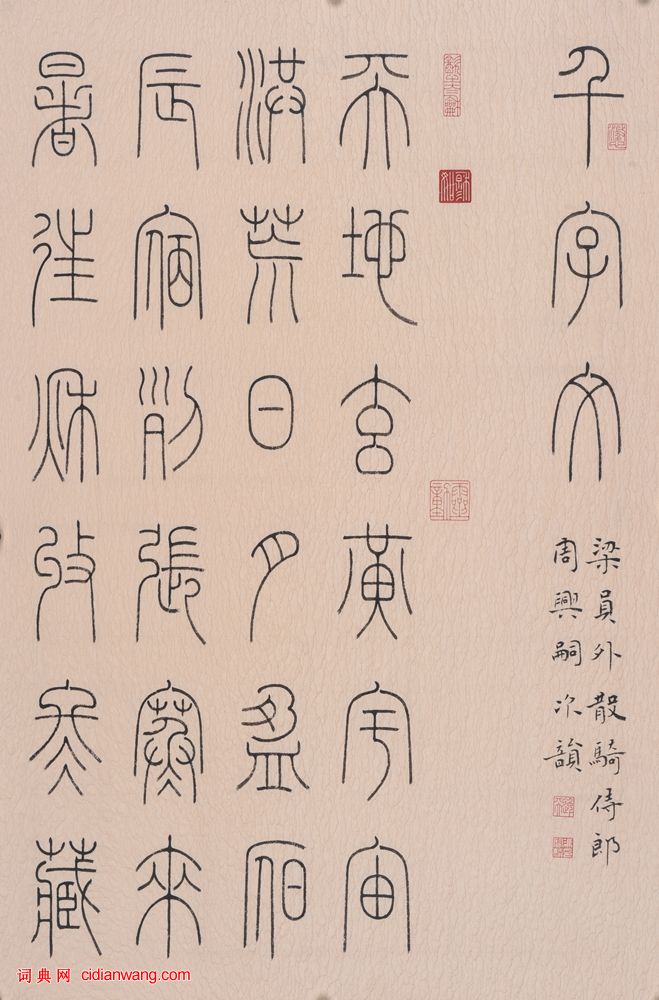 千字文
梁員外散騎侍郎
周興嗣次韻
天地玄黃宇宙
洪荒日月盈昃
辰宿列張寒來
暑往秋收冬藏
词典网 cidianwang.com